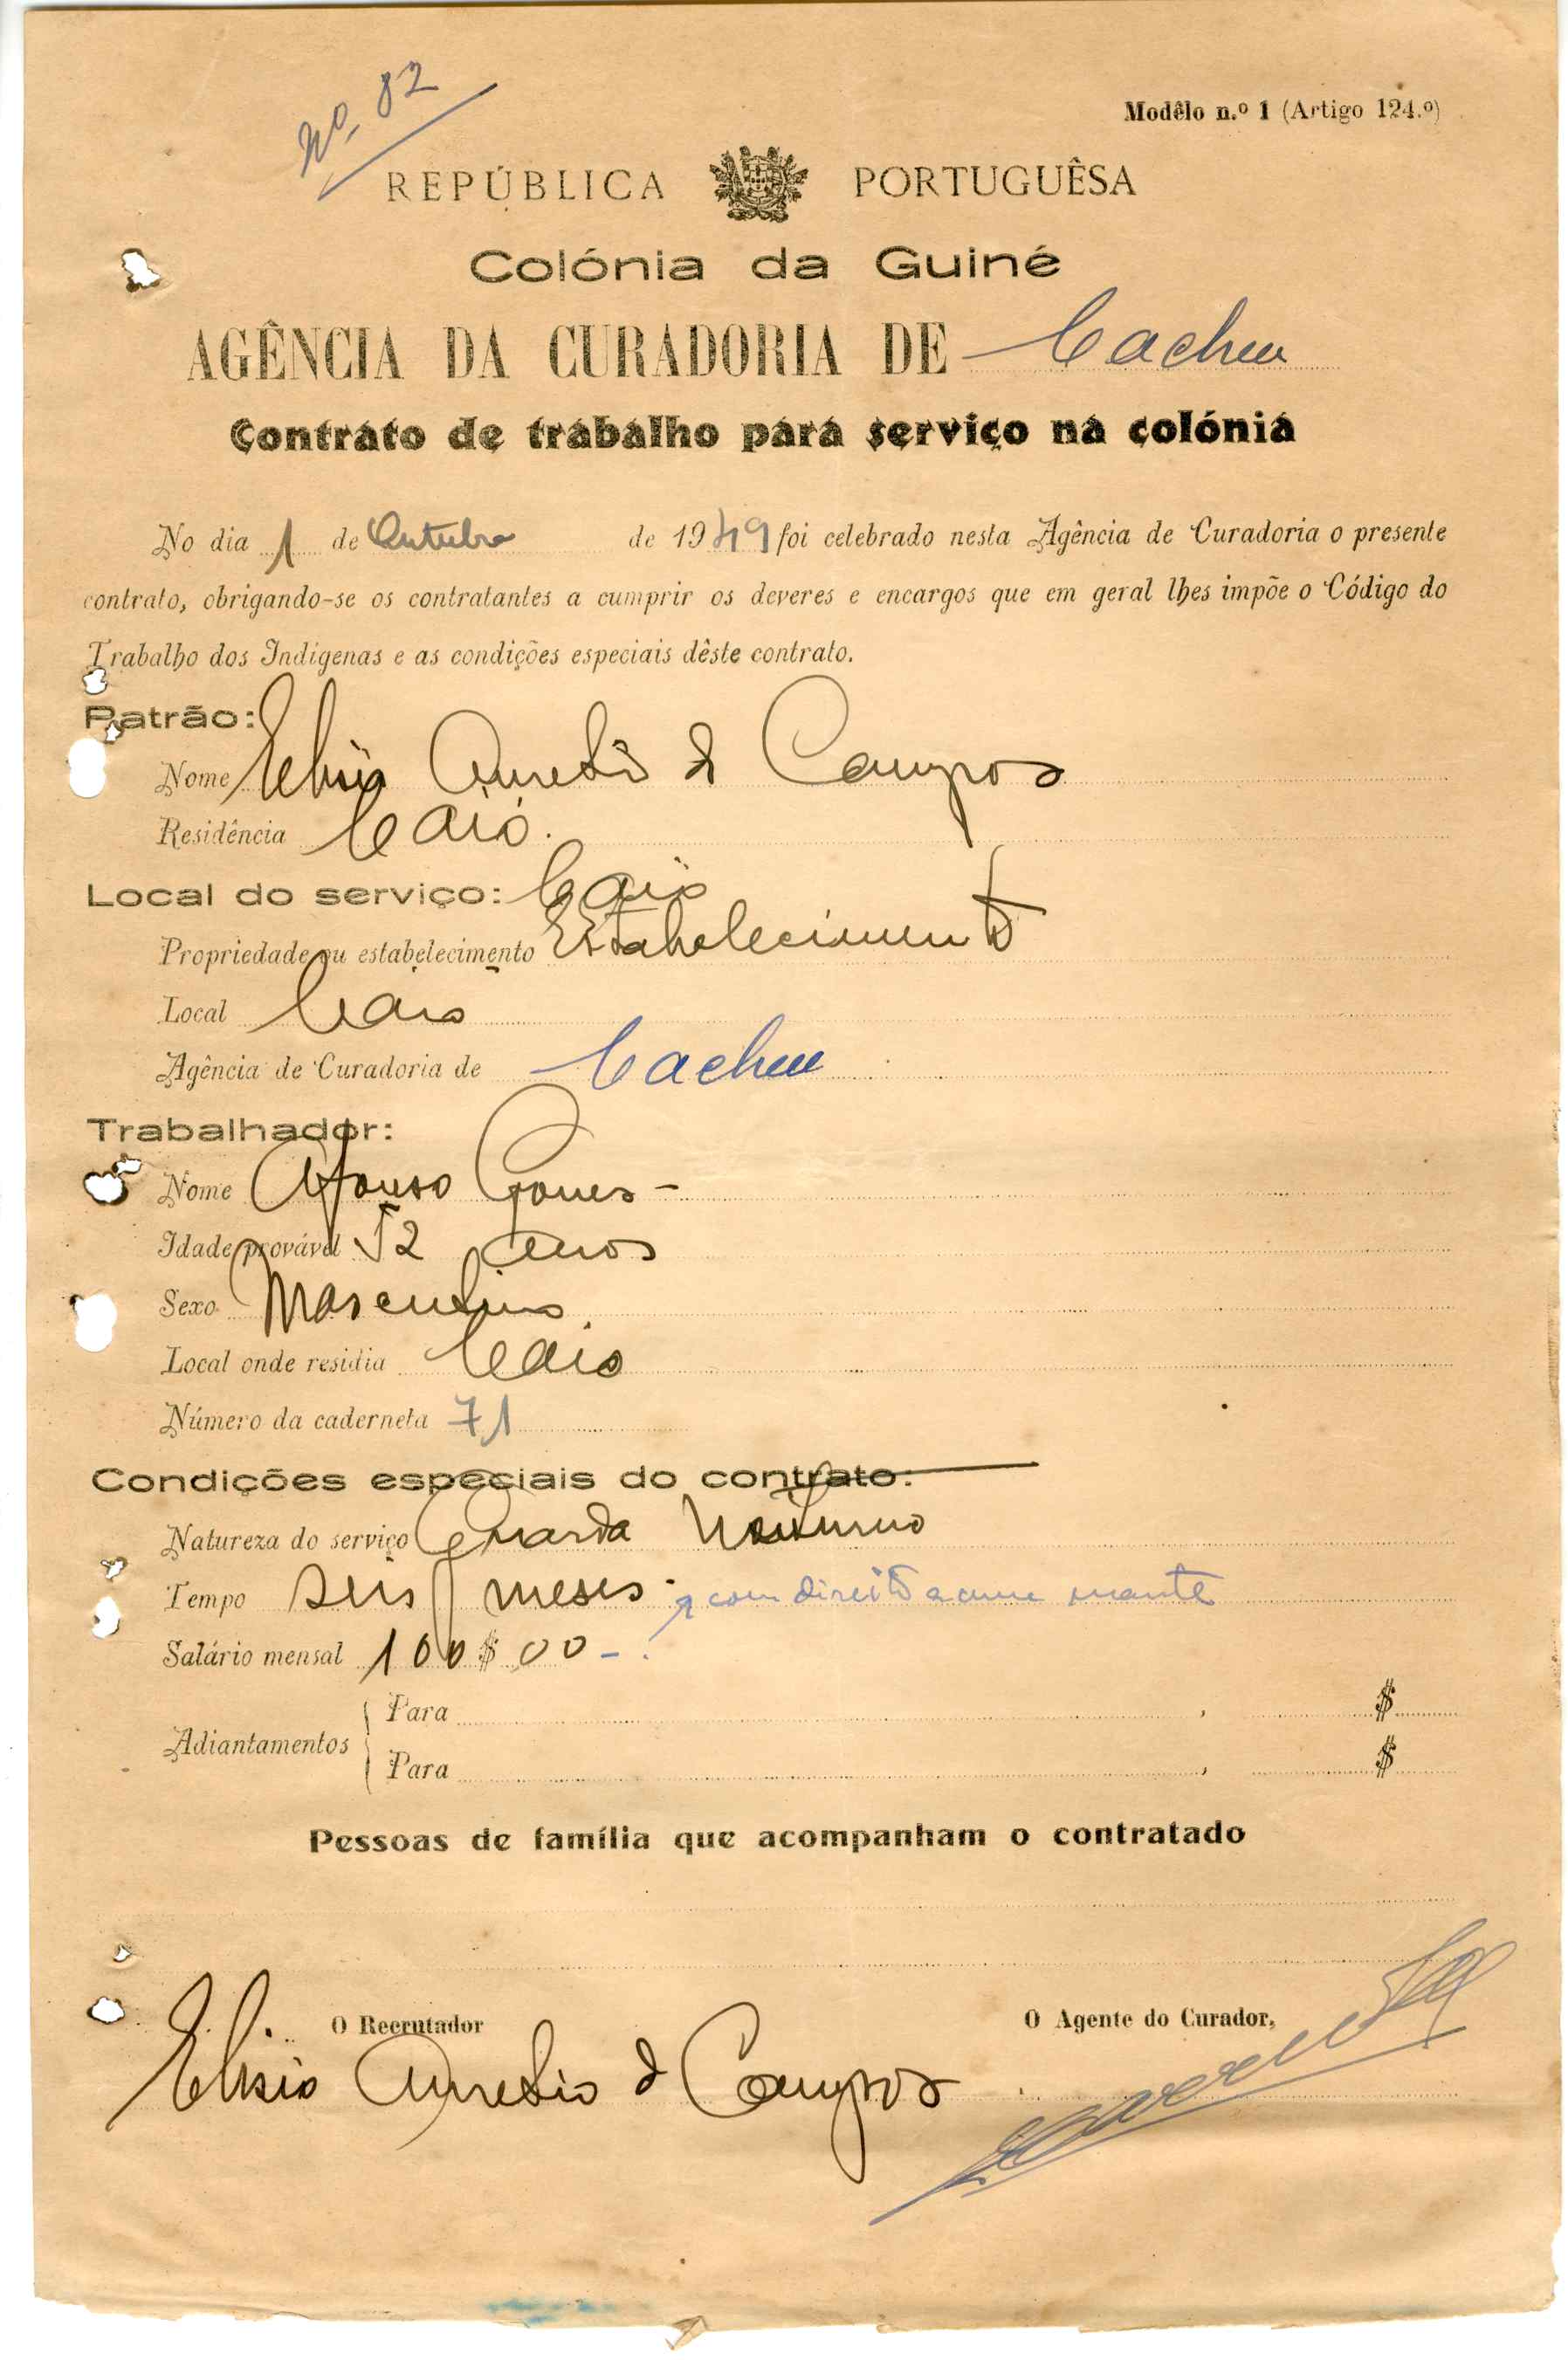 Nº 82
Modêlo n.º 1 (Artigo 124.º)
REPÚBLICA PORTUGUÊSA
Colónia da Guiné
AGÊNCIA DA CURADORIA DE Cacheu
Contrato de trabalho para serviço na colónia
No dia 1 de Outubro de 1949 foi celebrado nesta Agência de Curadoria o presente
contrato, obrigando-se os contratantes a cumprir os deveres e encargos que em geral lhes impõe o Código do
Trabalho dos Indígenas e as condições especiais dêste contrato.
Patrão:
Nome Elisio Aurelio d Campos
Residência Caió.
Local do serviço: Caió
Propriedade ou estabelecimento Estabelecimento
Local Caio
Agência de Curadoria de Cacheu
Trabalhador:
Nome Afonso Gomes -
Idade provável 52 anos
Sexo Masculino
Local onde residia Caio
Número da caderneta 71
Condições especiais do contrato:
Natureza do serviço Guarda Nocturno
Tempo seis meses com direito a
Salário mensal 100$00 -
Adiantamentos
Para , $
Para , $
Pessoas de família que acompanham o contratado
O Recrutador
O Agente do Curador,
Elisio Aurelio d Campos